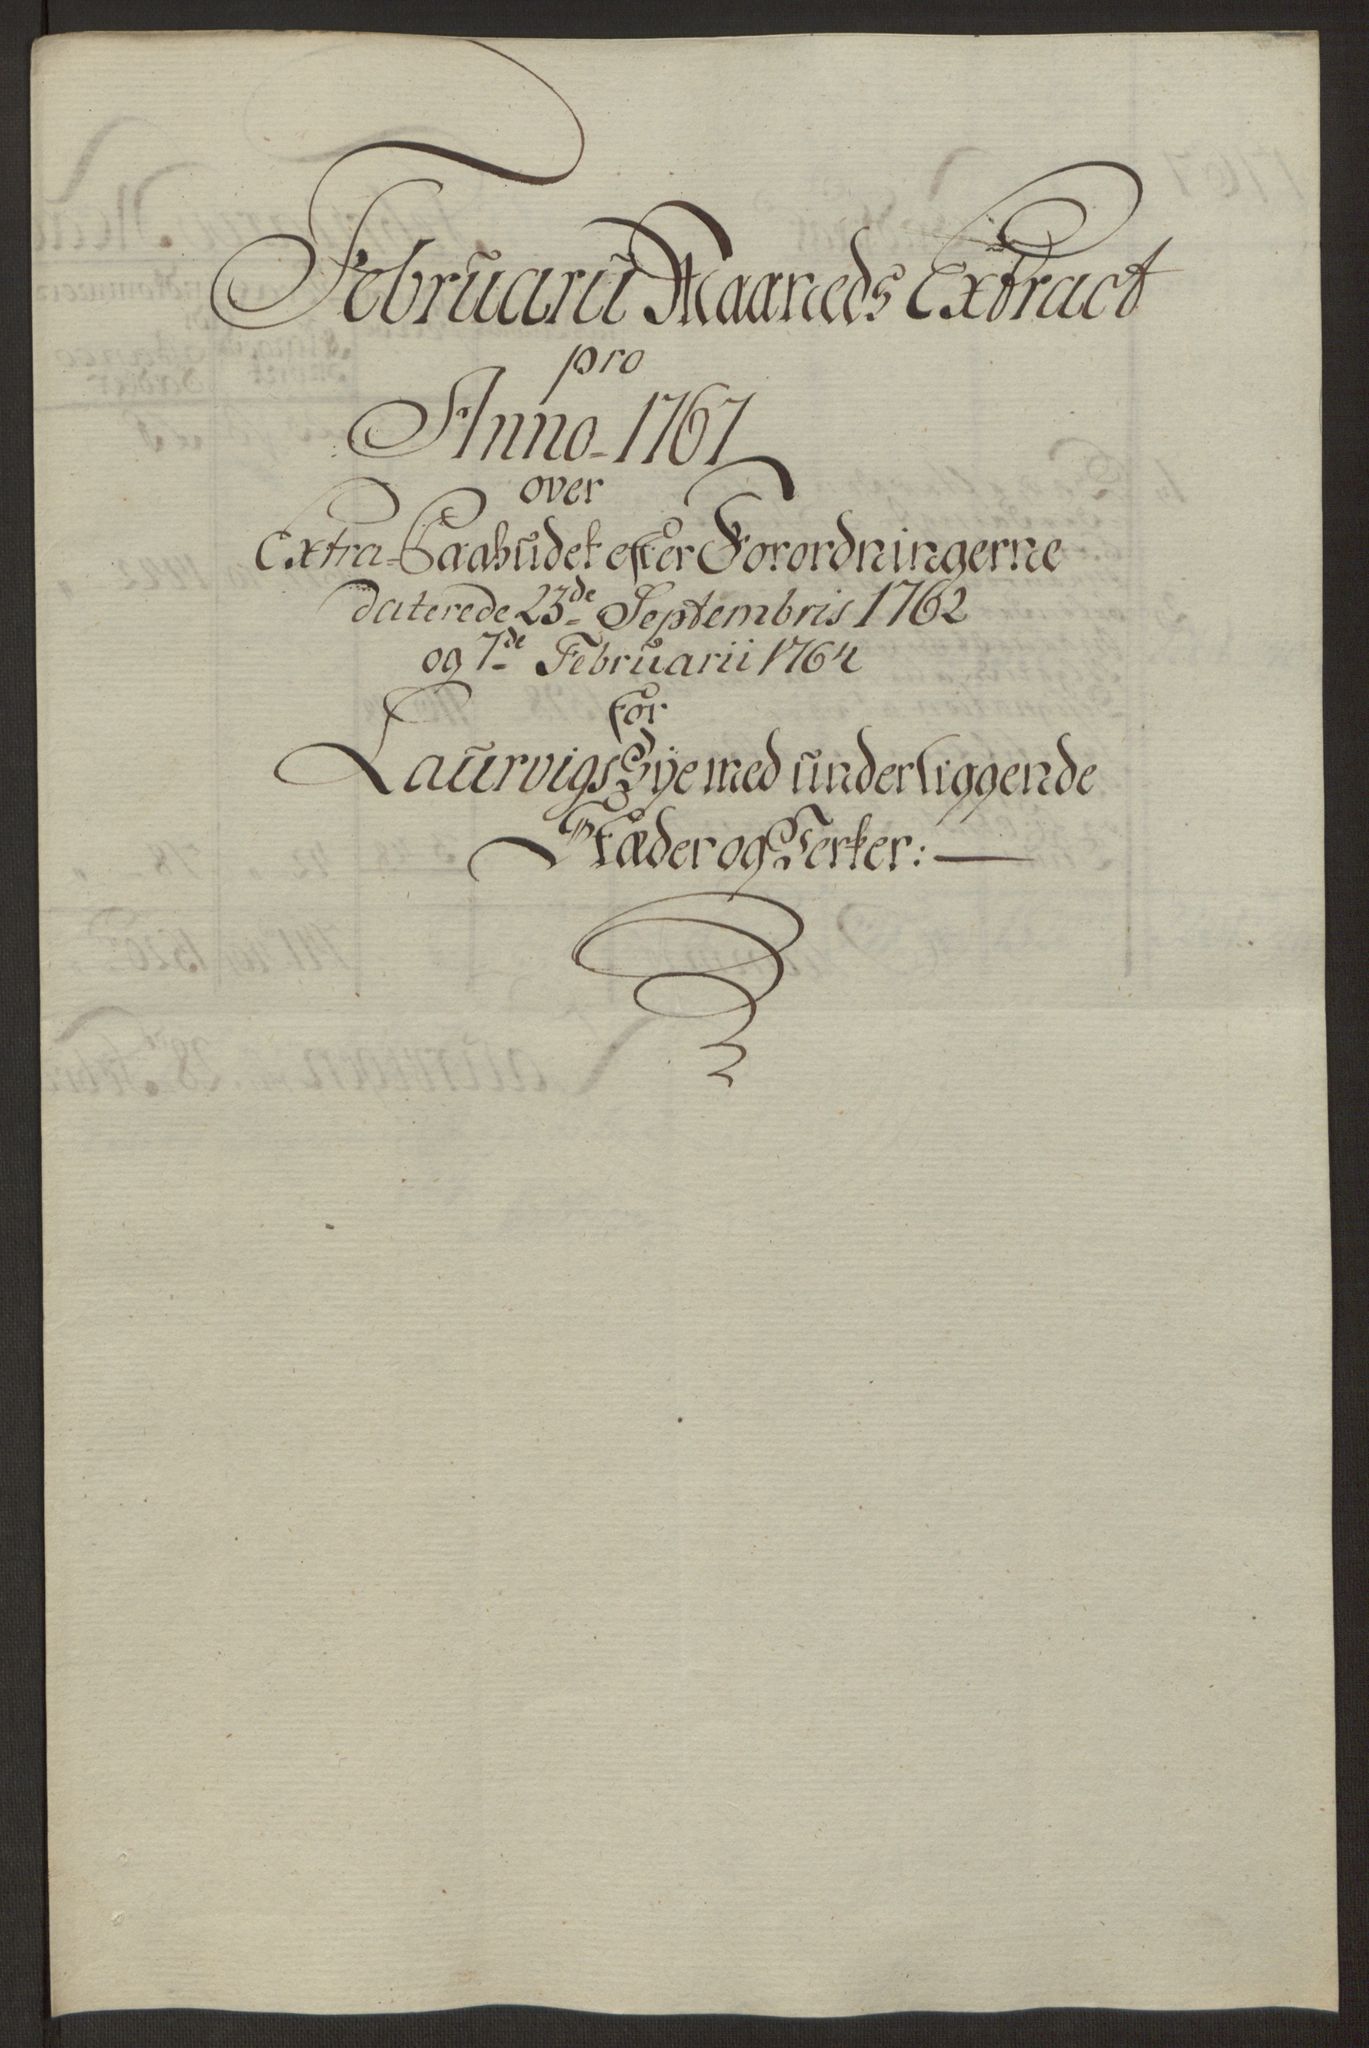 Februarii Maaneds Extract
pro
Anno 1767
over
Extra-Paabudet efter Forordningerne
daterede 23de Septembris 1762
og 7de Februarii 1764
for
Laurvigs Bye med underliggende
Stæder og Verker: